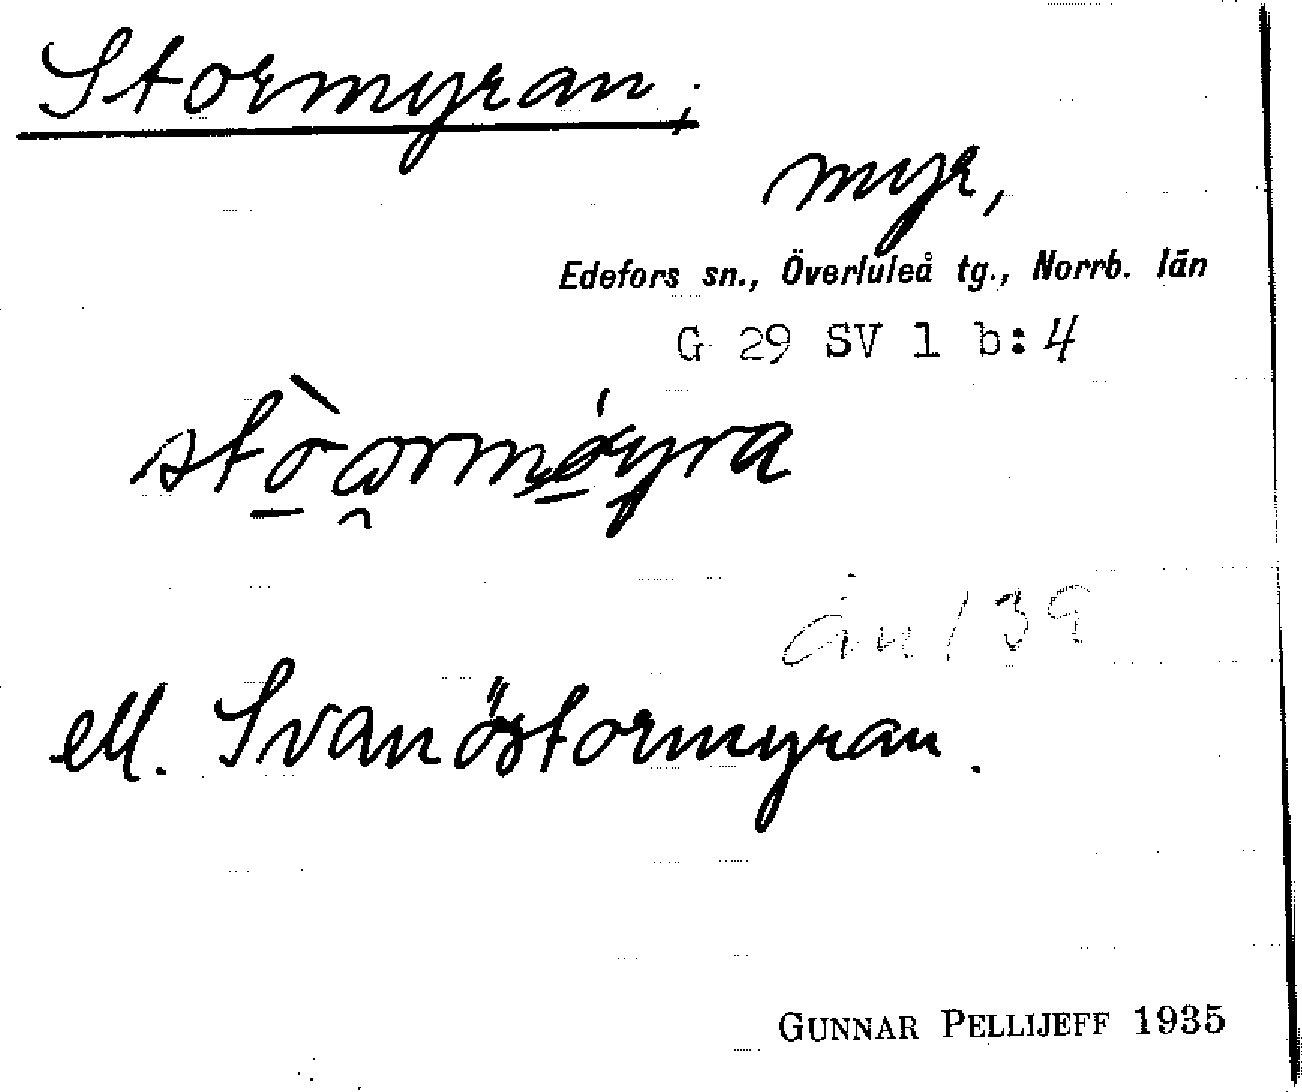 Stormyran;
myr,
Edefors sn., Överluleå tg., Norrb. län
G 29 SV 1 b:4
ell. Svanöstormyran.
GUNNAR PELLIJEFF 1935